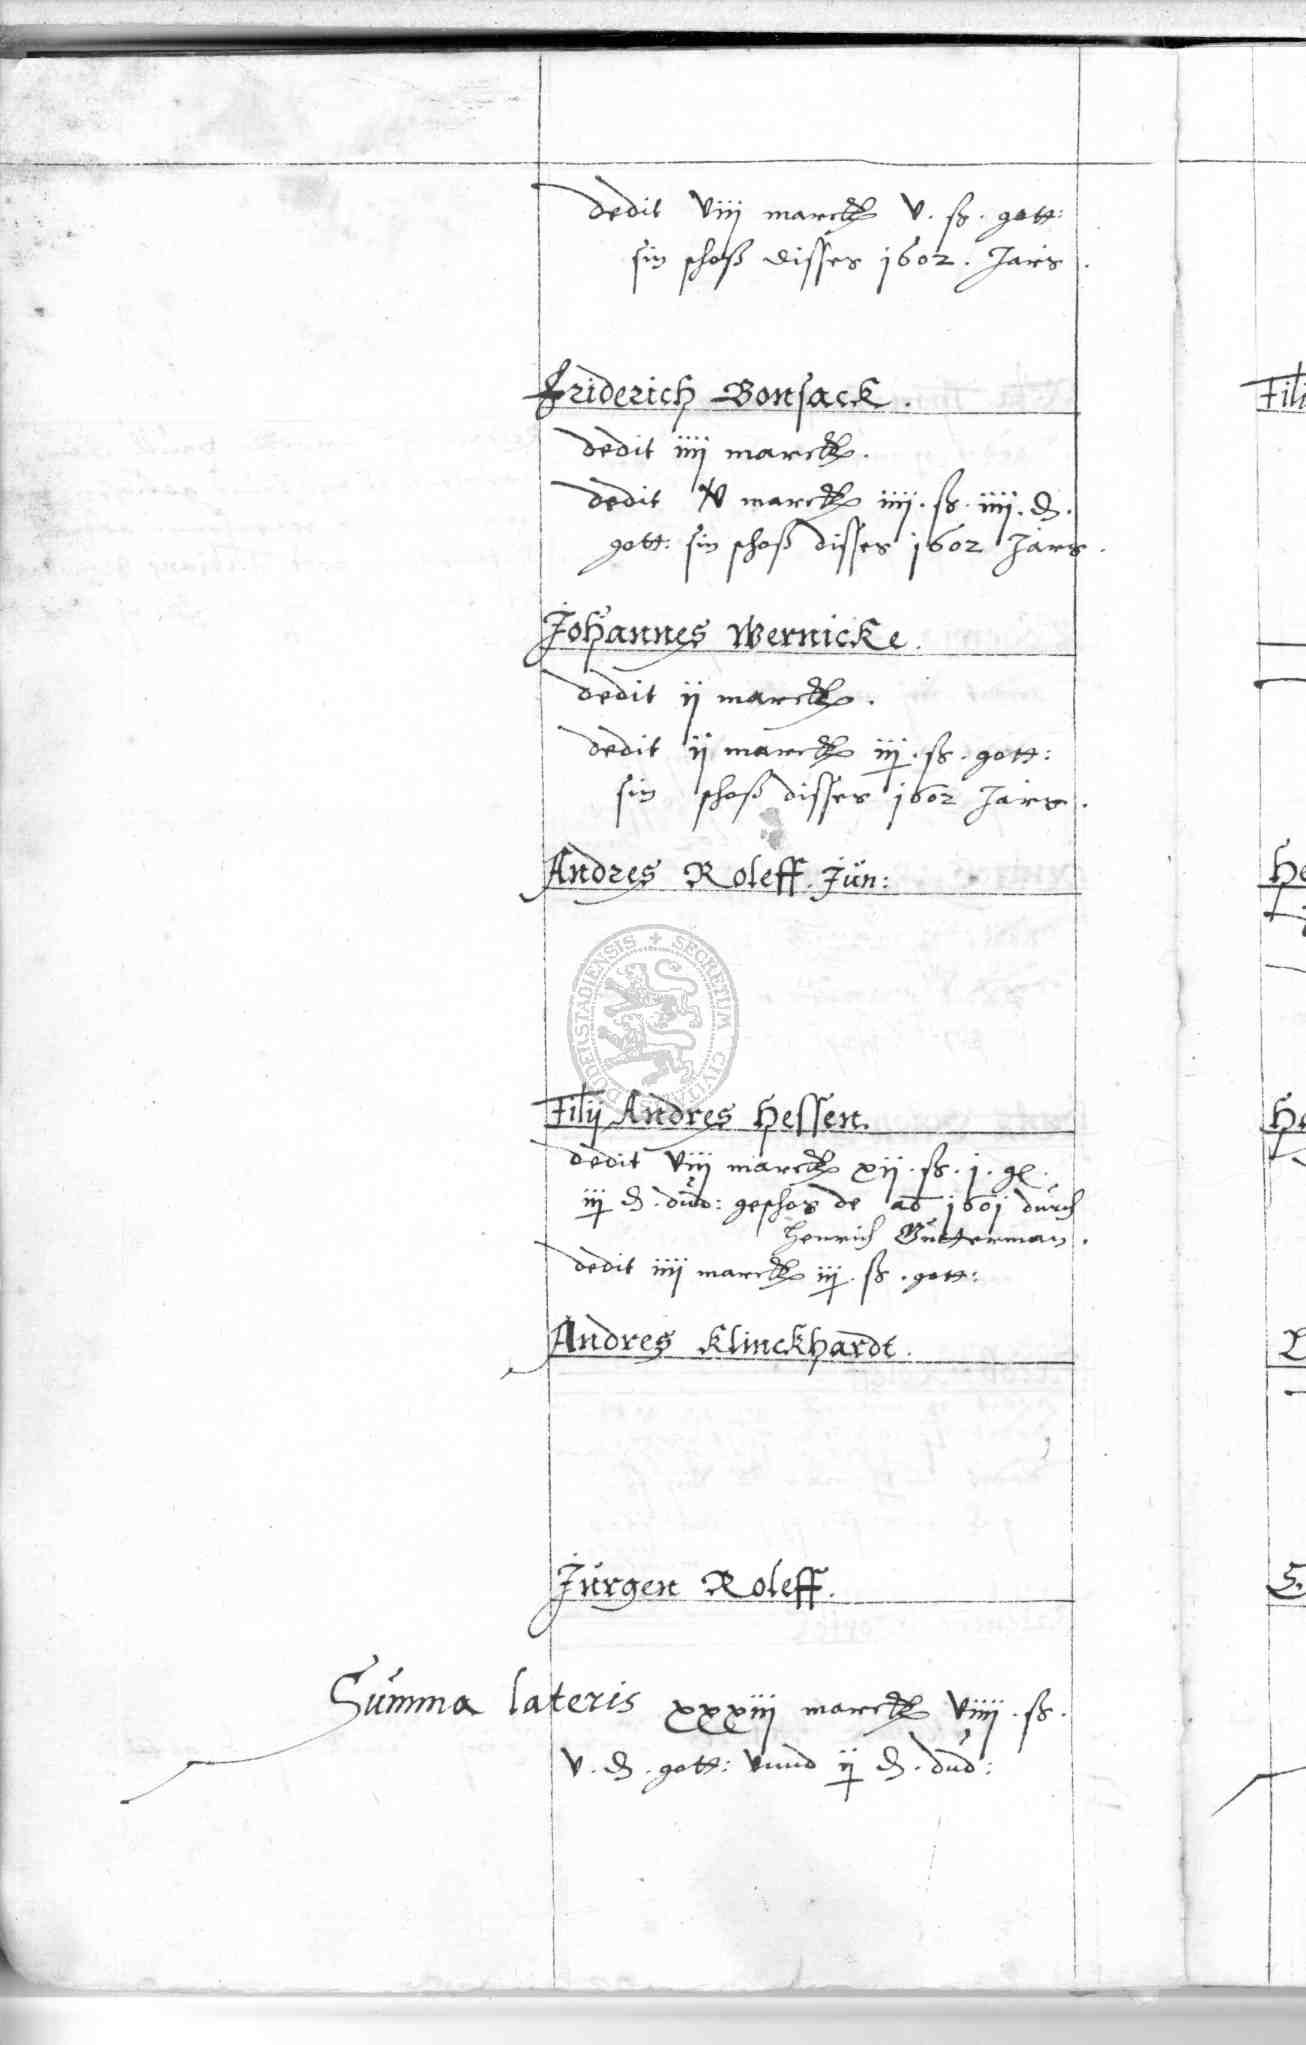 dedit viij marck v. ß. gott:
sin schoß disses 1602. Jars.
Friderich Bonsack.
dedit iiij marck.
dedit v marck iiij. ß. iiij. ₰.
gott: sin schoß disses 1602 Jars.
Johannes Wernicke.
dedit ij marck.
dedit ij marck iij. ß. gott:
sin schoß disses 1602 Jars.
Andres Roleff. Jün:
SECRETUM CIVITATIS DUDERSTADIENSIS
Filij Andres Hessen.
dedit viij marck xij. ß. j.
iij ₰. dud: geschos de ao 1601 durch
Henrich Gutterman.
dedit iiij marck iij. ß. gott:
Andres Klinckhardt.
Jürgen Roleff.
Summa lateris xxxiij marck viiij. ß.
v. ₰. gott: vnnd ij ₰. dud:
Fili